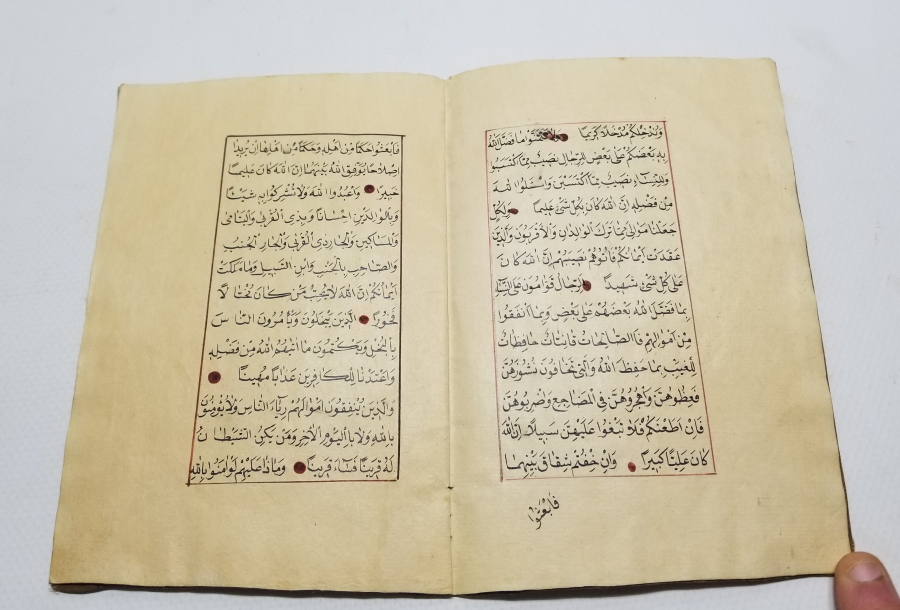 وَنُدْخِلْكُمْ مُدْخَلًا كَرِيمًا وَلَا تَتَمَنَّوْا مَا فَضَّلَ اللّٰهُ
بِهِ بَعْضَكُمْ عَلَى بَعْضٍ لِلرِّجَالِ نَصِيبٌ مِمَّا اكْتَسَبُوا
وَلِلنِّسَاءِ نَصِيبٌ مِمَّا اكْتَسَبْنَ وَاسْئَلُوا اللّٰهَ
مِنْ فَضْلِهِ اِنَّ اللّٰهَ كَانَ بِكُلِّ شَیْءٍ عَلِيمًا وَلِكُلٍّ
جَعَلْنَا مَوَالِيَ مِمَّا تَرَكَ الْوَالِدَانِ وَالْاَقْرَبُونَ وَالَّذِينَ
عَقَدَتْ اَيْمَانُكُمْ فَاٰتُوهُمْ نَصِيبَهُمْ اِنَّ اللّٰهَ كَانَ
عَلَى كُلِّ شَیْءٍ شَهِيدًا اَلرِّجَالُ قَوَّامُونَ عَلَى النِّسَاءِ
بِمَا فَضَّلَ اللّٰهُ بَعْضَهُمْ عَلَى بَعْضٍ وَبِمَا اَنْفَقُوا
مِنْ اَمْوَالِهِمْ فَالصَّالِحَاتُ قَانِتَاتٌ حَافِظَاتٌ
لِلْغَيْبِ بِمَا حَفِظَ اللّٰهُ وَالّٰتِي تَخَافُونَ نُشُوزَهُنَّ
فَعِظُوهُنَّ وَاهْجُرُوهُنَّ فِي الْمَضَاجِعِ وَاضْرِبُوهُنَّ
فَاِنْ اَطَعْنَكُمْ فَلَا تَبْغُوا عَلَيْهِنَّ سَبِيلًا اِنَّ اللّٰهَ
كَانَ عَلِيًّا كَبِيرًا وَاِنْ خِفْتُمْ شِقَاقَ بَيْنِهِمَا
فَابْعَثُوا
فَابْعَثُوا حَكَمًا مِنْ اَهْلِهِ وَحَكَمًا مِنْ اَهْلِهَا اِنْ يُرِيدَا
اِصْلَاحًا يُوَفِّقِ اللّٰهُ بَيْنَهُمَا اِنَّ اللّٰهَ كَانَ عَلِيمًا
خَبِيرًا وَاعْبُدُوا اللّٰهَ وَلَا تُشْرِكُوا بِهِ شَيْئًا
وَبِالْوَالِدَيْنِ اِحْسَانًا وَبِذِي الْقُرْبَى وَالْيَتَامَى
وَالْمَسَاكِينِ وَالْجَارِ ذِي الْقُرْبَى وَالْجَارِ الْجُنُبِ
وَالصَّاحِبِ بِالْجَنْبِ وَابْنِ السَّبِيلِ وَمَا مَلَكَتْ
اَيْمَانُكُمْ اِنَّ اللّٰهَ لَا يُحِبُّ مَنْ كَانَ مُخْتَالًا
فَخُورًا اَلَّذِينَ يَبْخَلُونَ وَيَأْمُرُونَ النَّاسَ
بِالْبُخْلِ وَيَكْتُمُونَ مَا اٰتٰيهُمُ اللّٰهُ مِنْ فَضْلِهِ
وَاَعْتَدْنَا لِلْكَافِرِينَ عَذَابًا مُهِينًا
وَالَّذِينَ يُنْفِقُونَ اَمْوَالَهُمْ رِئَاءَ النَّاسِ وَلَا يُؤْمِنُونَ
بِاللّٰهِ وَلَا بِالْيَوْمِ الْاٰخِرِ وَمَنْ يَكُنِ الشَّيْطَانُ
لَهُ قَرِينًا فَسَاءَ قَرِينًا وَمَاذَا عَلَيْهِمْ لَوْ اٰمَنُوا بِاللّٰهِ